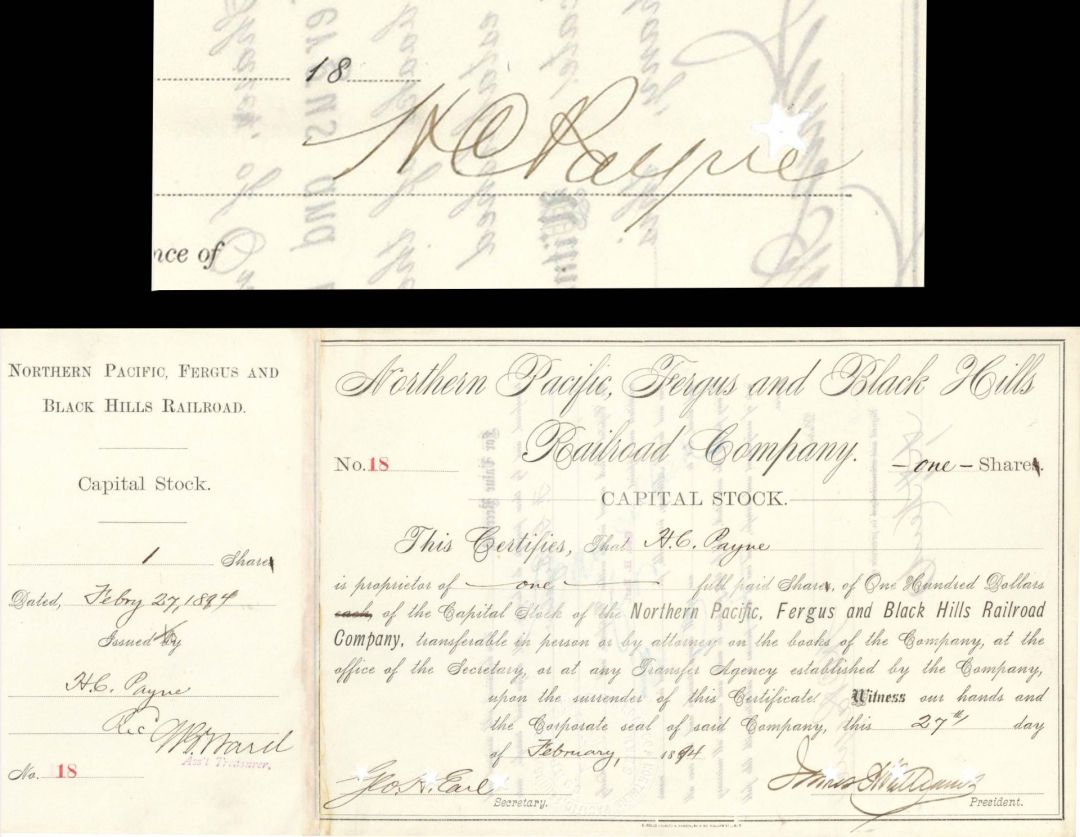 18
H C Payne
nce of
NORTHERN PACIFIC, FERGUS AND
BLACK HILLS RAILROAD.
Capital Stock.
1 Share
Dated, Febry 27, 1894
Issued By
H.C. Payne
Rec
W Ward
Ass't Treasurer.
No. 18
Northern Pacific, Fergus and Black Hills
Railroad Company.
No. 18
- one - Share.
CAPITAL STOCK.
This Certifies, That H.C. Payne
is proprietor of one full paid Share, of One Hundred Dollars
each, of the Capital Stock of the Northern Pacific, Fergus and Black Hills Railroad
Company, transferable in person or by attorney on the books of the Company, at the
office of the Secretary, or at any Transfer Agency established by the Company,
upon the surrender of this Certificate. Witness our hands and
the Corporate seal of said Company, this 27th day
of February, 1894
Geo. H. Earl
Secretary.
James Williams
President.